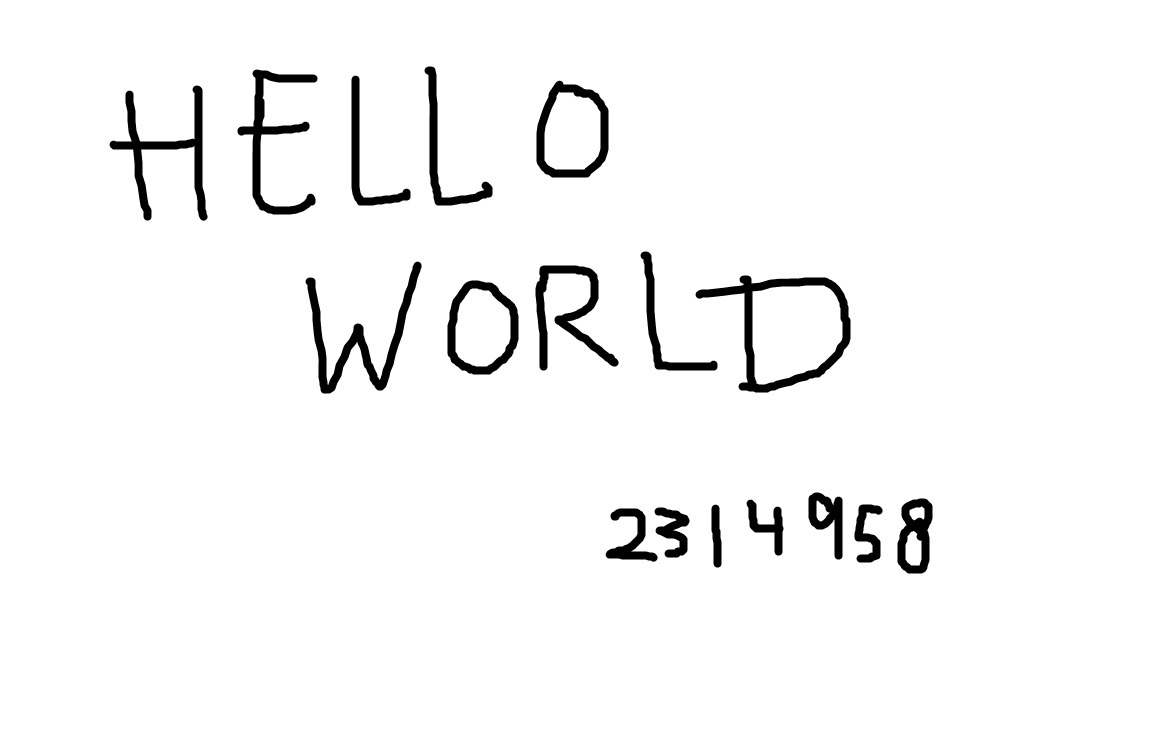 HELLO
WORLD
2314958